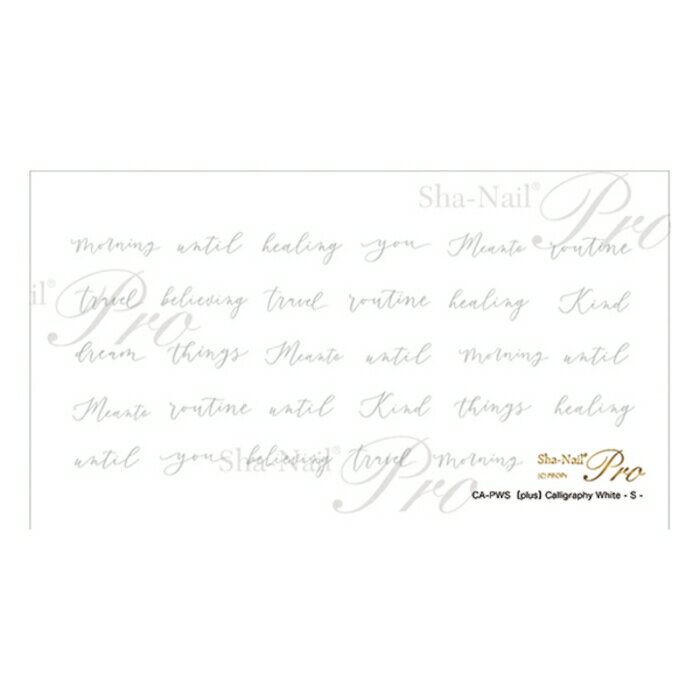 Sha-Nail® Pro
morning until healing you Meanto routine
travel believing travel routine healing Kind
Nail® Pro
dream things Meanto until morning until
Meanto routine until Kind things healing
until you believing travel morning
Sha-Nail® Pro
Sha-Nail® Pro
CA-PWS [plus] Calligraphy White - S -